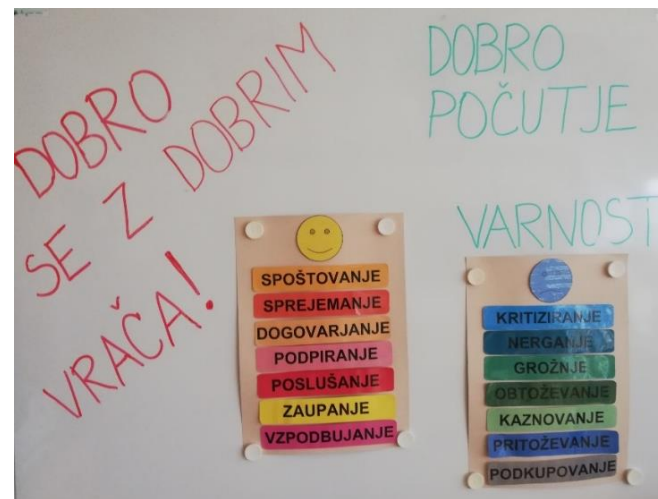 DOBRO
SE Z DOBRIM
VRAČA!
DOBRO
POČUTJE
VARNOST
SPOŠTOVANJE
SPREJEMANJE
DOGOVARJANJE
PODPIRANJE
POSLUŠANJE
ZAUPANJE
VZPODBUJANJE
KRITIZIRANJE
NERGANJE
GROŽNJE
OBTOŽEVANJE
KAZNOVANJE
PRITOŽEVANJE
PODKUPOVANJE